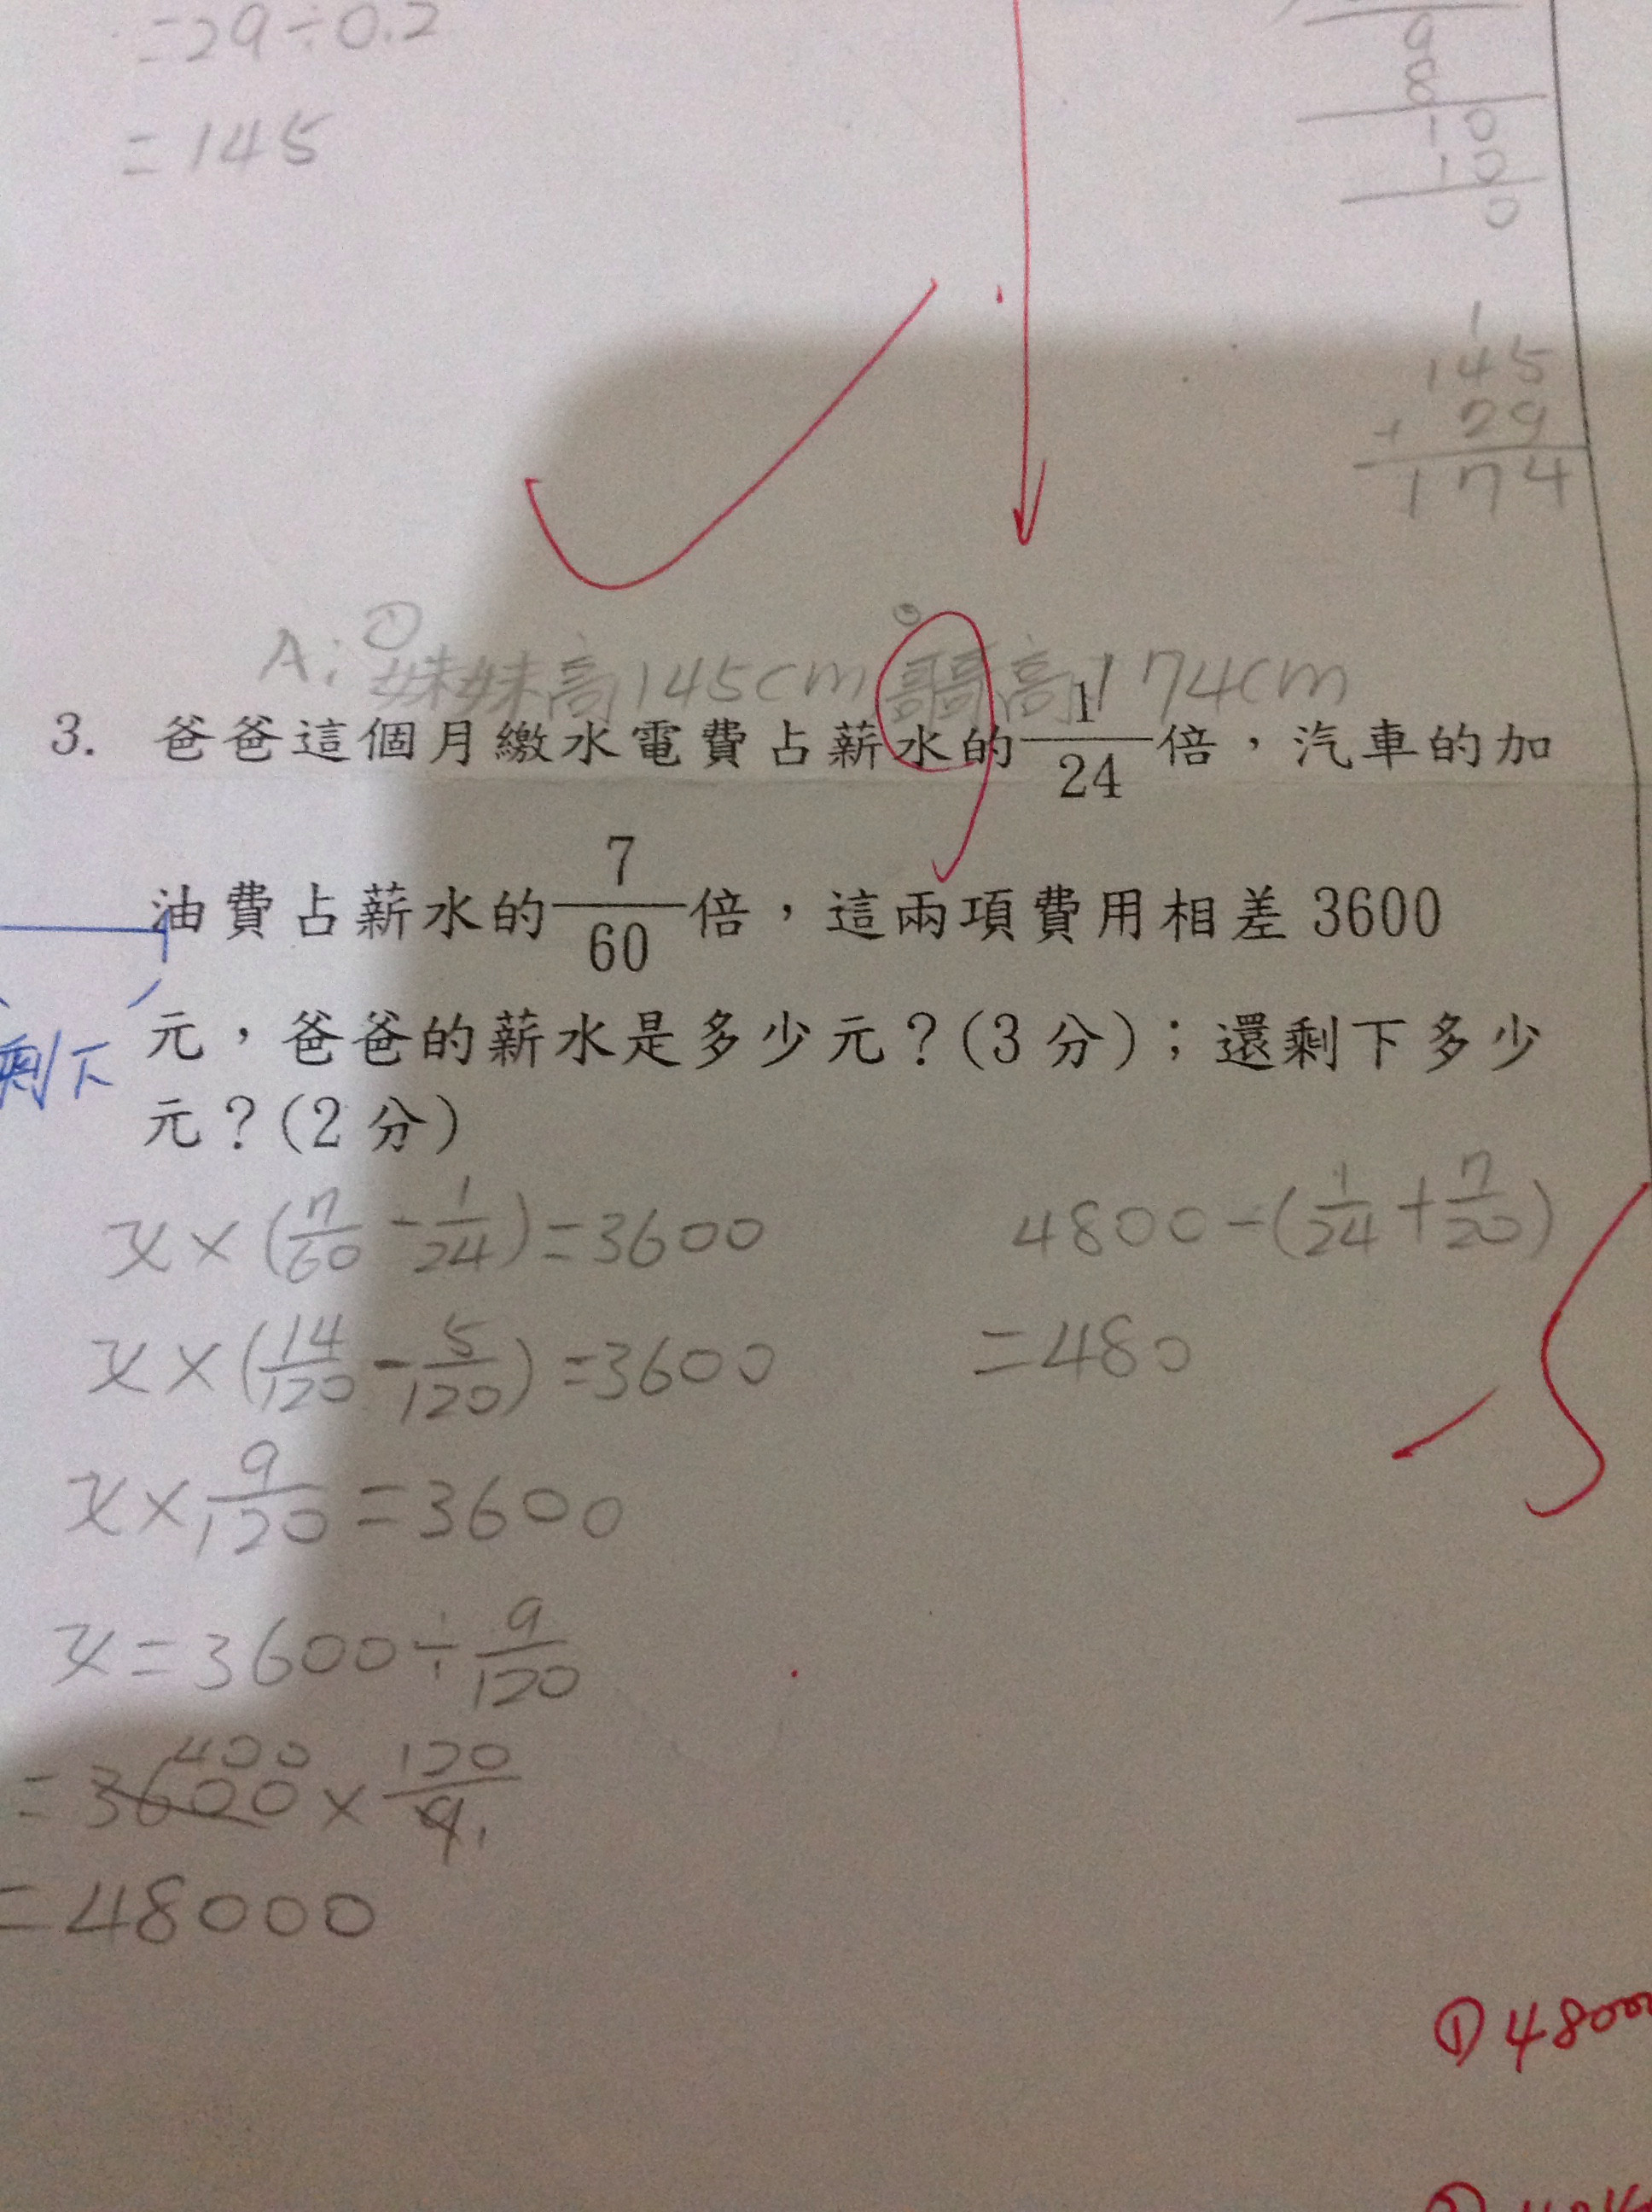 =29÷0.2
=145
9
8
10
10
0
1
145
+ 29
174
A:①妹妹高145cm 哥哥高174cm
3. 爸爸這個月繳水電費占薪水的1/24倍，汽車的加
油費占薪水的7/60倍，這兩項費用相差3600
元，爸爸的薪水是多少元？(3分)；還剩下多少
元？(2分)
剩下
x×(7/60-1/24)=3600
x×(14/120-5/120)=3600
x×9/120=3600
x=3600÷9/120
=3600×120/9
400
1
=48000
4800-(1/24+7/20)
=480
①48000